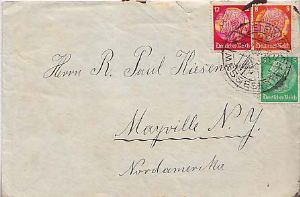 12 8
Deutsches Reich Deutsches Reich
5
Deutsches Reich
Herrn R. Paul Hiesen
Mayville N. Y.
Nordamerika